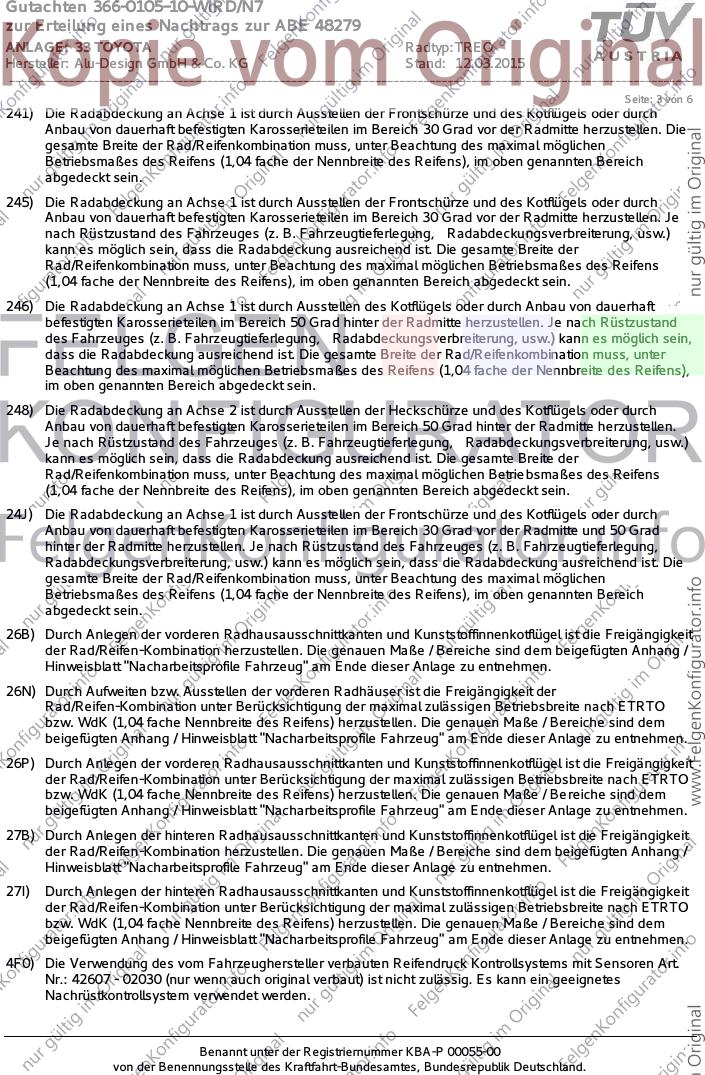 Gutachten 366-0105-10-WIRD/N7
zur Erteilung eines Nachtrags zur ABE 48279
ANLAGE: 33 TOYOTA
Radtyp: TREO
Hersteller: Alu-Design GmbH & Co. KG
Stand: 12.03.2015
TÜV
AUSTRIA
Kopie vom Original
Seite: 3 von 6
241) Die Radabdeckung an Achse 1 ist durch Ausstellen der Frontschürze und des Kotflügels oder durch
Anbau von dauerhaft befestigten Karosserieteilen im Bereich 30 Grad vor der Radmitte herzustellen. Die
gesamte Breite der Rad/Reifenkombination muss, unter Beachtung des maximal möglichen
Betriebsmaßes des Reifens (1,04 fache der Nennbreite des Reifens), im oben genannten Bereich
abgedeckt sein.
245) Die Radabdeckung an Achse 1 ist durch Ausstellen der Frontschürze und des Kotflügels oder durch
Anbau von dauerhaft befestigten Karosserieteilen im Bereich 30 Grad vor der Radmitte herzustellen. Je
nach Rüstzustand des Fahrzeuges (z. B. Fahrzeugtieferlegung, Radabdeckungsverbreiterung, usw.)
kann es möglich sein, dass die Radabdeckung ausreichend ist. Die gesamte Breite der
Rad/Reifenkombination muss, unter Beachtung des maximal möglichen Betriebsmaßes des Reifens
(1,04 fache der Nennbreite des Reifens), im oben genannten Bereich abgedeckt sein.
246) Die Radabdeckung an Achse 1 ist durch Ausstellen des Kotflügels oder durch Anbau von dauerhaft
befestigten Karosserieteilen im Bereich 50 Grad hinter der Radmitte herzustellen. Je nach Rüstzustand
des Fahrzeuges (z. B. Fahrzeugtieferlegung, Radabdeckungsverbreiterung, usw.) kann es möglich sein,
dass die Radabdeckung ausreichend ist. Die gesamte Breite der Rad/Reifenkombination muss, unter
Beachtung des maximal möglichen Betriebsmaßes des Reifens (1,04 fache der Nennbreite des Reifens),
im oben genannten Bereich abgedeckt sein.
248) Die Radabdeckung an Achse 2 ist durch Ausstellen der Heckschürze und des Kotflügels oder durch
Anbau von dauerhaft befestigten Karosserieteilen im Bereich 50 Grad hinter der Radmitte herzustellen.
Je nach Rüstzustand des Fahrzeuges (z. B. Fahrzeugtieferlegung, Radabdeckungsverbreiterung, usw.)
kann es möglich sein, dass die Radabdeckung ausreichend ist. Die gesamte Breite der
Rad/Reifenkombination muss, unter Beachtung des maximal möglichen Betriebsmaßes des Reifens
(1,04 fache der Nennbreite des Reifens), im oben genannten Bereich abgedeckt sein.
24J) Die Radabdeckung an Achse 1 ist durch Ausstellen der Frontschürze und des Kotflügels oder durch
Anbau von dauerhaft befestigten Karosserieteilen im Bereich 30 Grad vor der Radmitte und 50 Grad
hinter der Radmitte herzustellen. Je nach Rüstzustand des Fahrzeuges (z. B. Fahrzeugtieferlegung,
Radabdeckungsverbreiterung, usw.) kann es möglich sein, dass die Radabdeckung ausreichend ist. Die
gesamte Breite der Rad/Reifenkombination muss, unter Beachtung des maximal möglichen
Betriebsmaßes des Reifens (1,04 fache der Nennbreite des Reifens), im oben genannten Bereich
abgedeckt sein.
26B) Durch Anlegen der vorderen Radhausausschnittkanten und Kunststoffinnenkotflügel ist die Freigängigkeit
der Rad/Reifen-Kombination herzustellen. Die genauen Maße / Bereiche sind dem beigefügten Anhang /
Hinweisblatt "Nacharbeitsprofile Fahrzeug" am Ende dieser Anlage zu entnehmen.
26N) Durch Aufweiten bzw. Ausstellen der vorderen Radhäuser ist die Freigängigkeit der
Rad/Reifen-Kombination unter Berücksichtigung der maximal zulässigen Betriebsbreite nach ETRTO
bzw. WdK (1,04 fache Nennbreite des Reifens) herzustellen. Die genauen Maße / Bereiche sind dem
beigefügten Anhang / Hinweisblatt "Nacharbeitsprofile Fahrzeug" am Ende dieser Anlage zu entnehmen.
26P) Durch Anlegen der vorderen Radhausausschnittkanten und Kunststoffinnenkotflügel ist die Freigängigkeit
der Rad/Reifen-Kombination unter Berücksichtigung der maximal zulässigen Betriebsbreite nach ETRTO
bzw. WdK (1,04 fache Nennbreite des Reifens) herzustellen. Die genauen Maße / Bereiche sind dem
beigefügten Anhang / Hinweisblatt "Nacharbeitsprofile Fahrzeug" am Ende dieser Anlage zu entnehmen.
27B) Durch Anlegen der hinteren Radhausausschnittkanten und Kunststoffinnenkotflügel ist die Freigängigkeit
der Rad/Reifen-Kombination herzustellen. Die genauen Maße / Bereiche sind dem beigefügten Anhang /
Hinweisblatt "Nacharbeitsprofile Fahrzeug" am Ende dieser Anlage zu entnehmen.
27I) Durch Anlegen der hinteren Radhausausschnittkanten und Kunststoffinnenkotflügel ist die Freigängigkeit
der Rad/Reifen-Kombination unter Berücksichtigung der maximal zulässigen Betriebsbreite nach ETRTO
bzw. WdK (1,04 fache Nennbreite des Reifens) herzustellen. Die genauen Maße / Bereiche sind dem
beigefügten Anhang / Hinweisblatt "Nacharbeitsprofile Fahrzeug" am Ende dieser Anlage zu entnehmen.
4F0) Die Verwendung des vom Fahrzeughersteller verbauten Reifendruck Kontrollsystems mit Sensoren Art.
Nr.: 42607 - 02030 (nur wenn auch original verbaut) ist nicht zulässig. Es kann ein geeignetes
Nachrüstkontrollsystem verwendet werden.
Benannt unter der Registriernummer KBA-P 00055-00
von der Benennungsstelle des Kraftfahrt-Bundesamtes, Bundesrepublik Deutschland.
FELGEN
KONFIGURATOR
FelgenKonfigurator.info
nur gültig im Original
www.FelgenKonfigurator.info